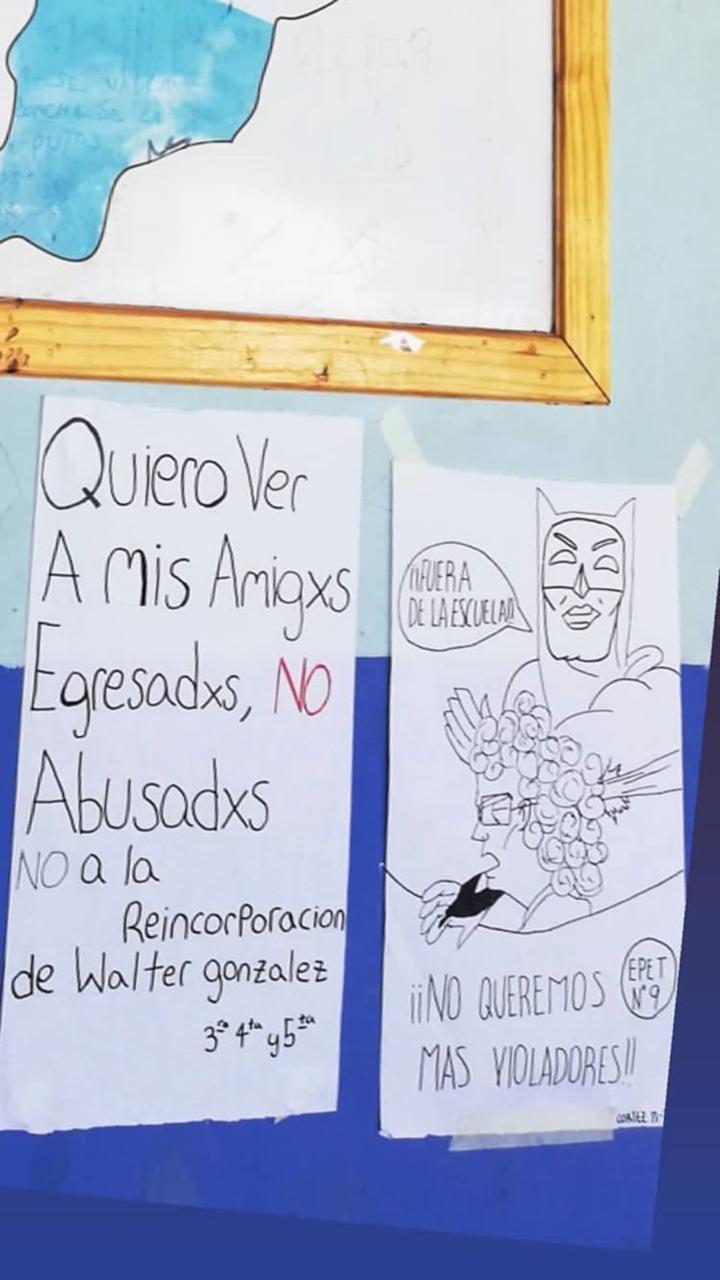 Quiero Ver
A Mis Amigxs
Egresadxs, NO
Abusadxs
NO a la
Reincorporacion
de Walter gonzalez
3ro 4ta y 5ta
¡¡FUERA
DE LA ESCUELA!!
¡¡NO QUEREMOS
MAS VIOLADORES!!
EPET
N°9